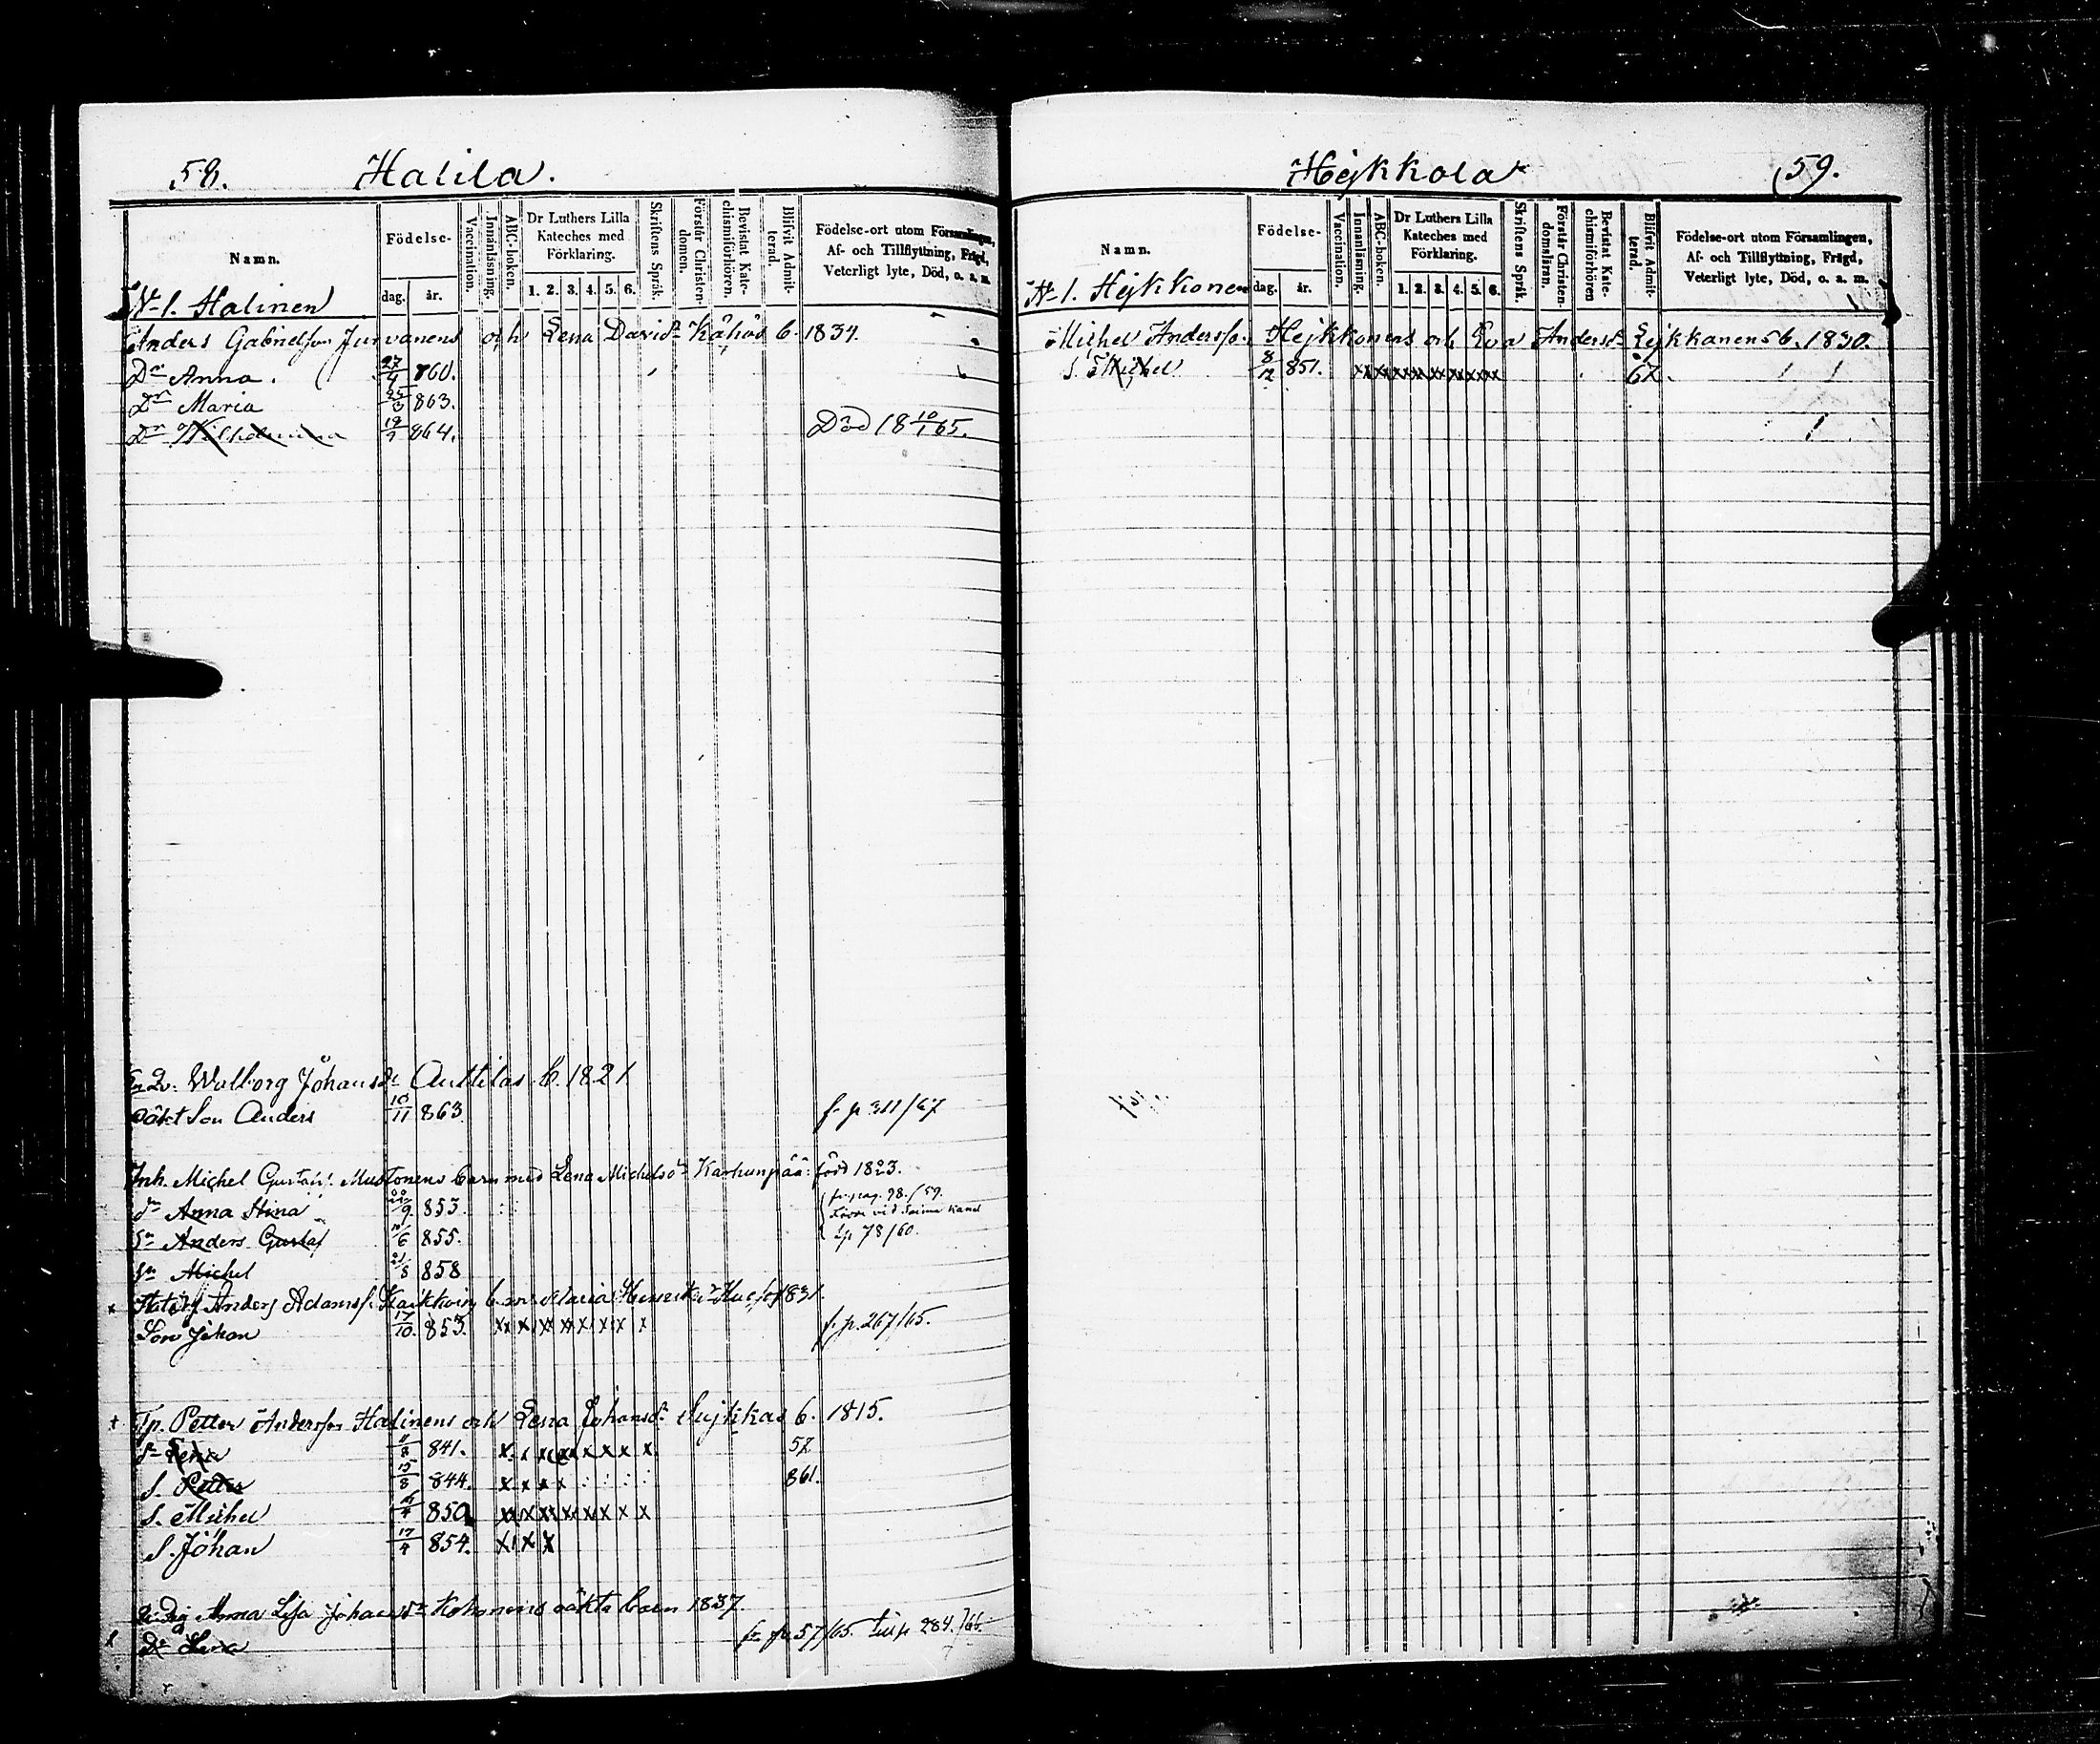 58. Halila.
Namn.
Födelse-
dag. år.
Vaccination.
Innanläsning.
ABC-boken.
Dr Luthers Lilla Kateches med Förklaring.
1. 2. 3. 4. 5. 6.
Skriftens Språk.
Förstår Christendomen.
Bevistat Katechismiförhören.
Blifvit Admitterad.
Födelse-ort utom Församlingen,
Af- och Tillflyttning, Frägd,
Veterligt lyte, Död, o. a. m.
N 1. Halinen
Anders Gabrielsson Jurvanens och Lena Davidsr Kähös b. 1834.
Dr Anna. 27/4 860.
Dr Maria 25/3 863.
Dr Wilhelmina 19/7 864. Död 18 10/1 65.
Walborg Johansdr Anttilas b. 1821
oäkt Son Anders 10/11 863 f. p 311/67
Inh. Michel Gustafs. Mustonens barn med Lena Michelsdr Karhunpää: född 1823.
dr Anna Stina 9 853. fr. pag. 98./59.
Sn Anders Gustaf 6 855. t p 78/60.
Sn Michel 8 858
Anders Adamss. b. m. Maria Henriksdr 1831.
Son Johan 17/10. 853. x x x x x x x x f. p. 267/65.
Tp. Petter Andersson Halinens och Lena Johansdr Sujkkas b. 1815.
dr Lena 11/8 841. x x x x x x x x 57
S. Petter 15/8 844. x x x x 861.
S. Michel 16/4 850 x x x x x x x x
S. Johan 17/4 854. x x x
Anna Lisa Johansdr Kohonens oäkta barn 1837.
Dr Lena fr p. 57/65. till p 284./66.
Hejkkola 59.
Namn.
Födelse-
dag. år.
Vaccination.
Innanläsning.
ABC-boken.
Dr Luthers Lilla Kateches med Förklaring.
1. 2. 3. 4. 5. 6.
Skriftens Språk.
Förstår Christendomsläran.
Bevistat Katechismiförhören
Blifvit Admitterad.
Födelse-ort utom Församlingen,
Af- och Tillflyttning, Frägd,
Veterligt lyte, Död, o. a. m.
N 1. Hejkkonen
Michel Andersson Hejkkonens och Eva Andersdr Lejkkanens b. 1830.
S. Michel 8/12 851. x x x x x x x x 67.